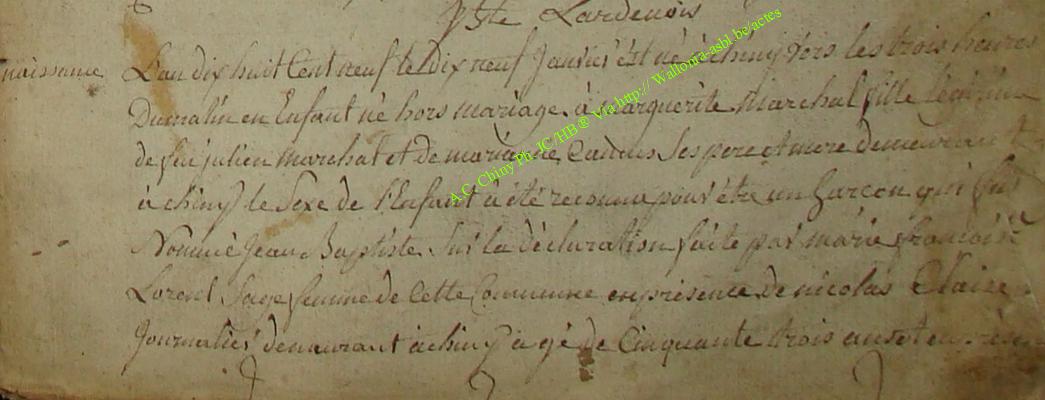 Pste Lardenois
naissance L'an dix huit Cent neuf le dix neuf Janvier est né à chiny vers les trois heures
Dumatin en Enfant né hors mariage. à marguerite marchal fille légitime
de feu julien marchal et de marianne ses pere et mere demeurant
à chiny le sexe de l'Enfant à été reconnu pour être un Garcon qui fut
Nommé Jean Baptiste. Sur la déclaration faite par marie françoise
Lorent Sage femme de Cette Commune en présence de nicolas Claise
Journalier demeurant à chiny agé de Cinquante trois ans et en
A.C. Chiny Ph. JC/HB ® Via http:// Wallonia-asbl.be/actes